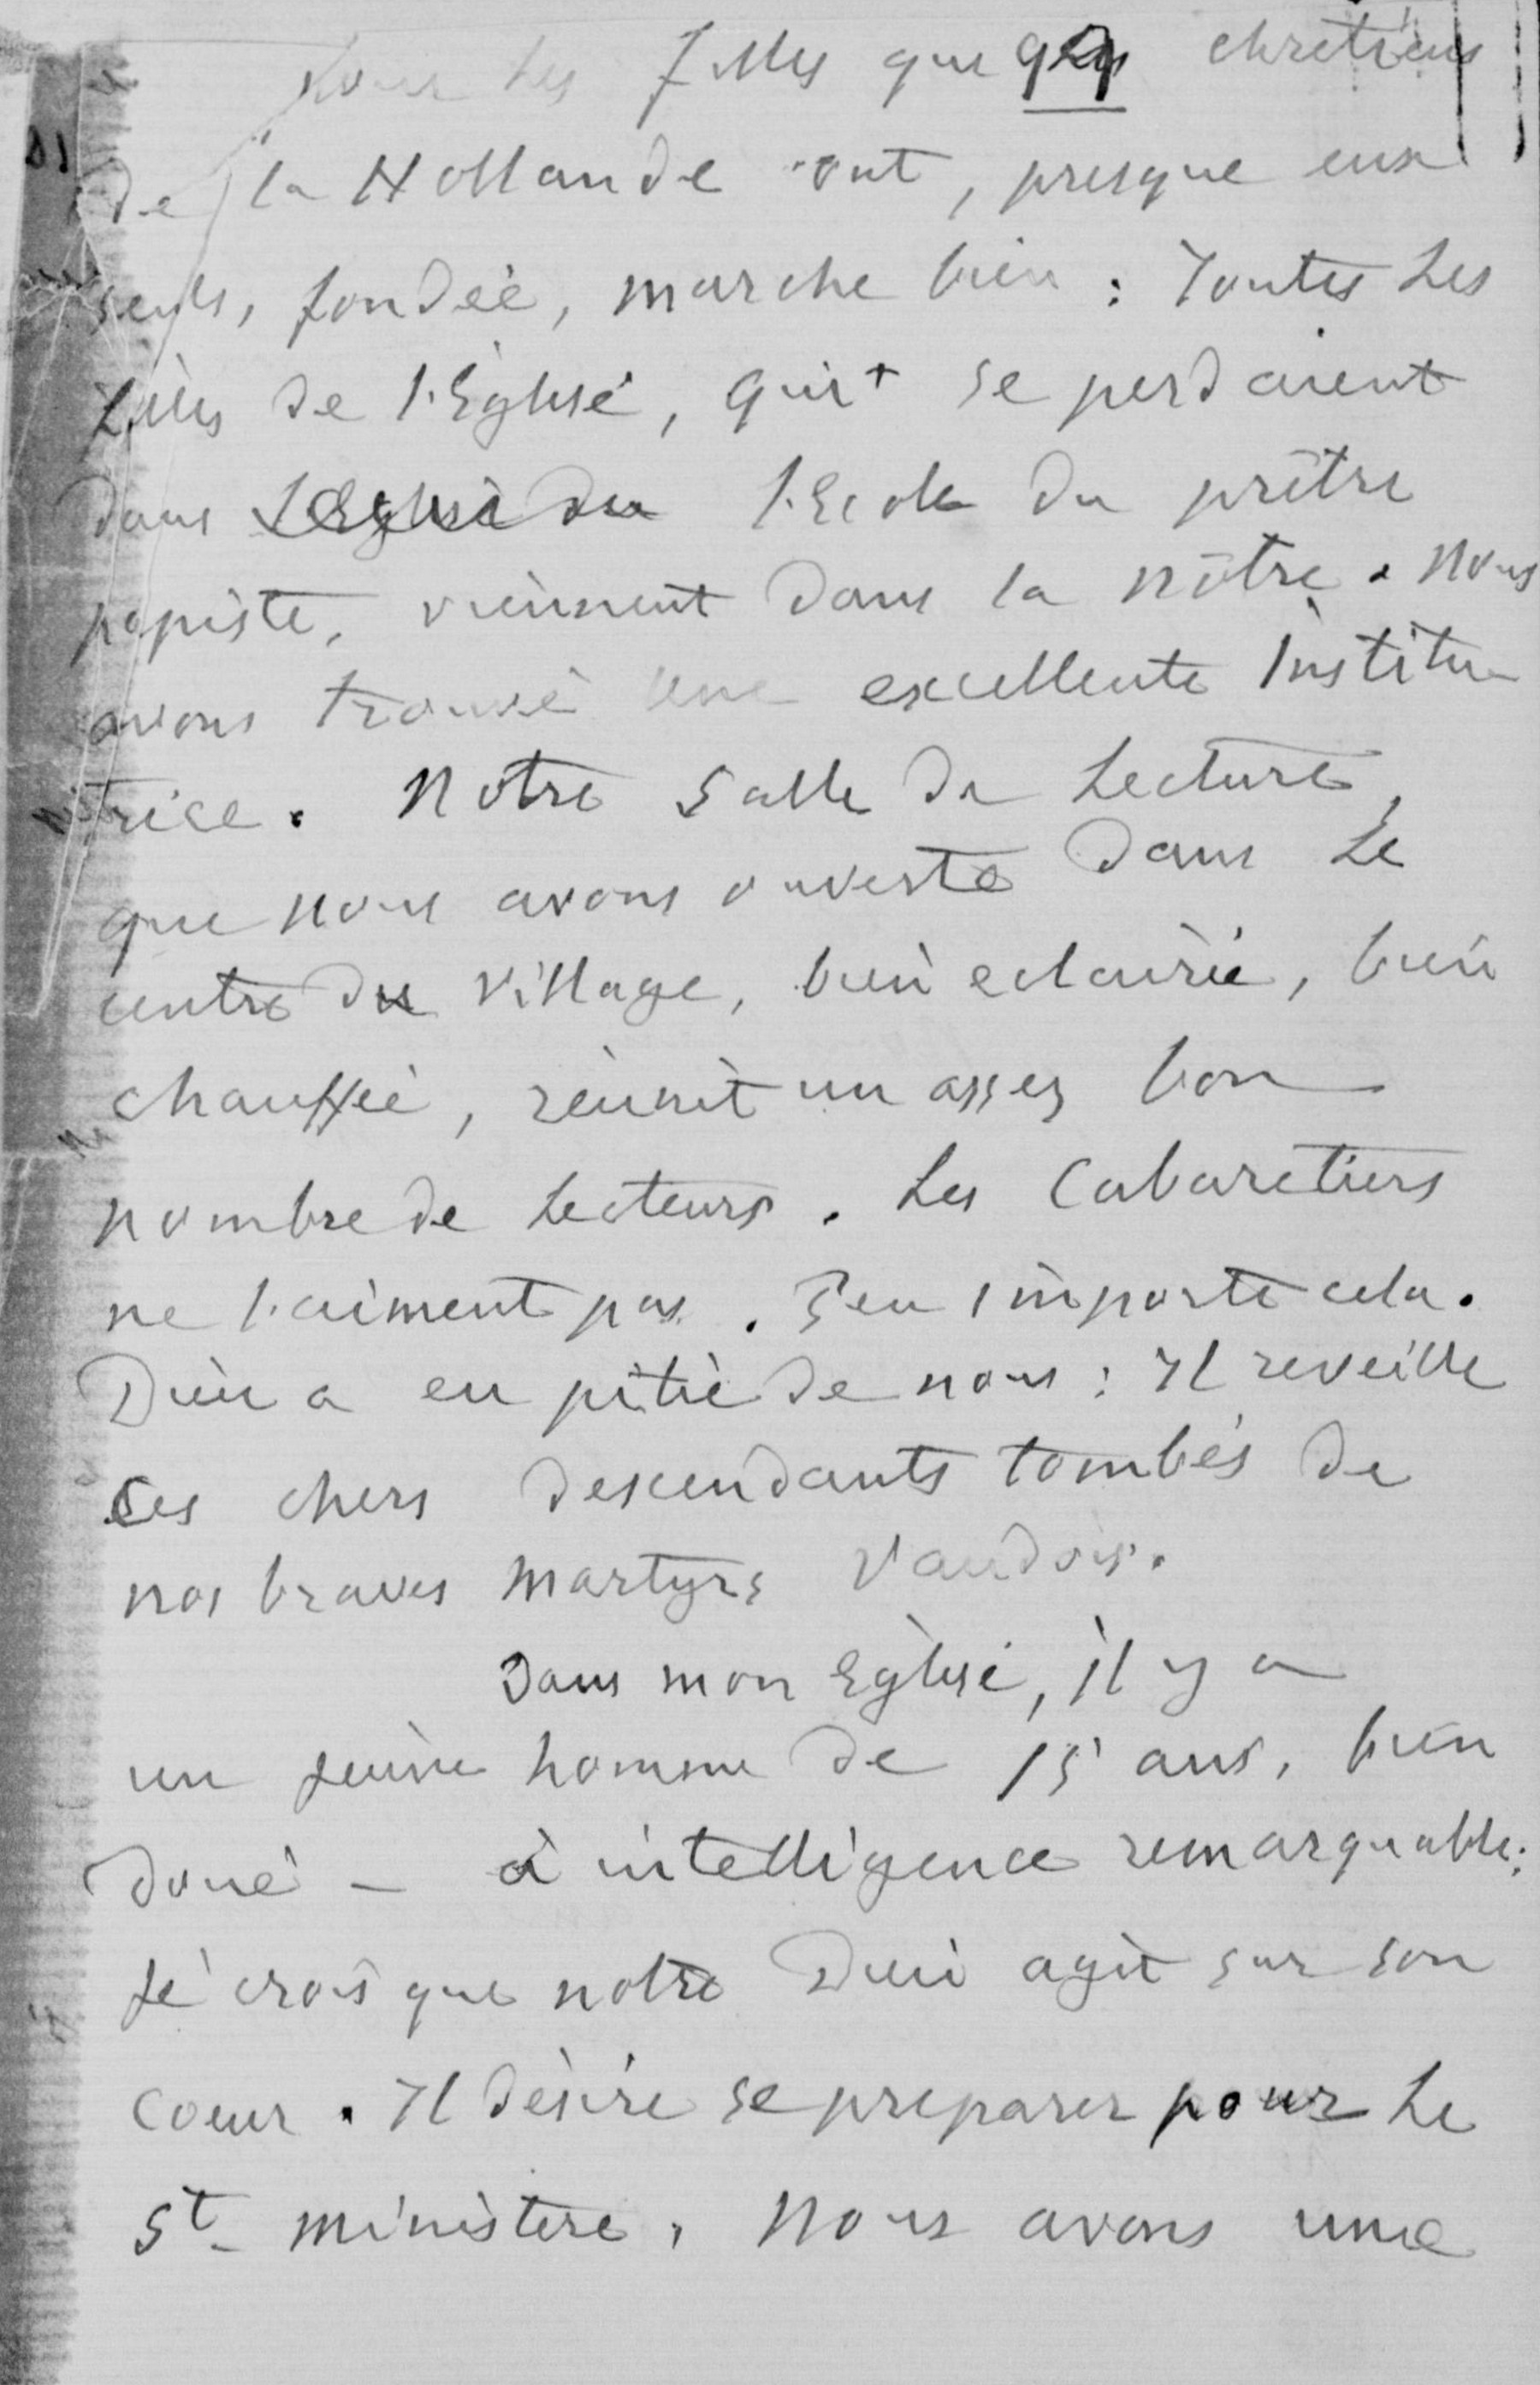 pour les filles que qqs chrétiens
de la Hollande ont, presque eux
seuls, fondée, marche bien : Toutes les
filles de l'Eglise, qui se perdaient
dans l'Eglise du l'Ecole du prêtre
papiste, viennent dans la nôtre. Nous
avons trouvé une excellente Institu
trice. Notre Salle de Lecture,
que nous avons ouverte dans le
centre du Village, bien eclairée, bien
chauffée, réunit un assez bon
nombre de Lecteurs. Les Cabaretiers
ne l'aiment pas. Peu importe cela.
Dieu a eu pitié de nous : Il reveille
ces chers descendants tombés de
nos braves Martyrs Vaudois.
Dans mon Eglise, il y a
un jeune homme de 15 ans, bien
doué - à intelligence remarquable;
Je crois que notre Dieu agit sur son
coeur. Il désire se preparer pour le
St ministère. Nous avons une